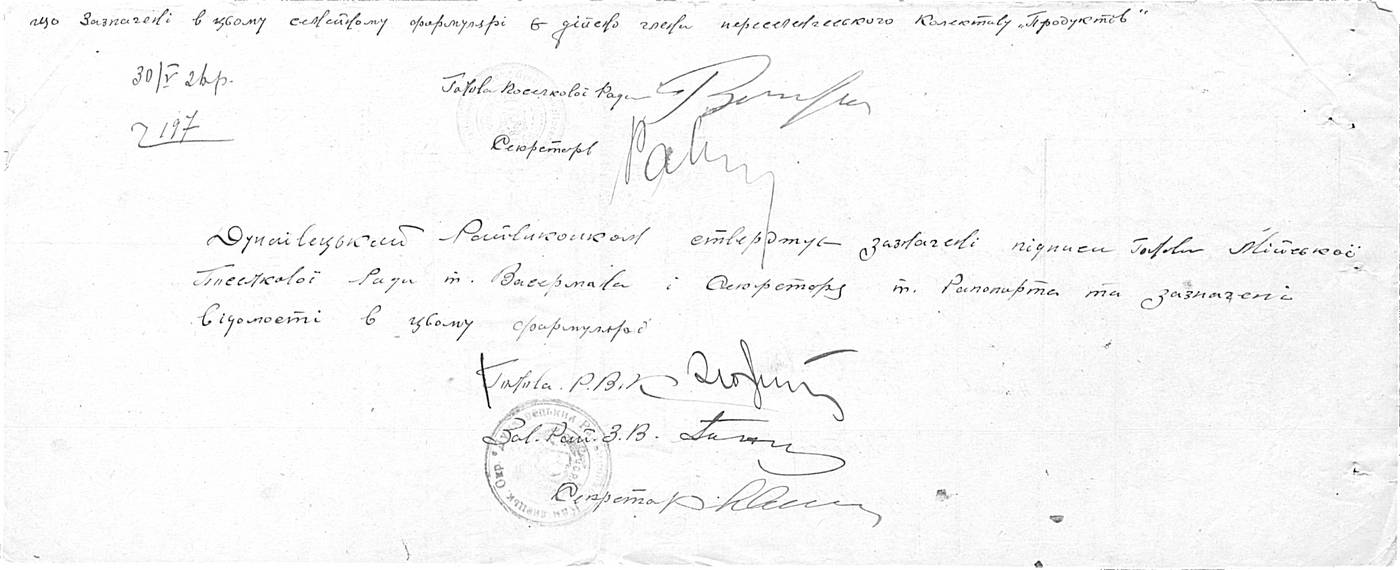 що зазначені в цьому сімейному формулярі є дійсно члени переселенчеського колективу „Продуктів"
30/V 26 р.
197
Голова Поселкової Ради
Секретарь
Дунаївецький Райвиконком стверджує зазначені підписи Голови Міської
Поселкової Ради т. Васермана і Секретаря т. Рапопорта та зазначені
відомості в цьому формулярі
Голова Р.В.К.
Зав. Рай. З.В.
Секретар